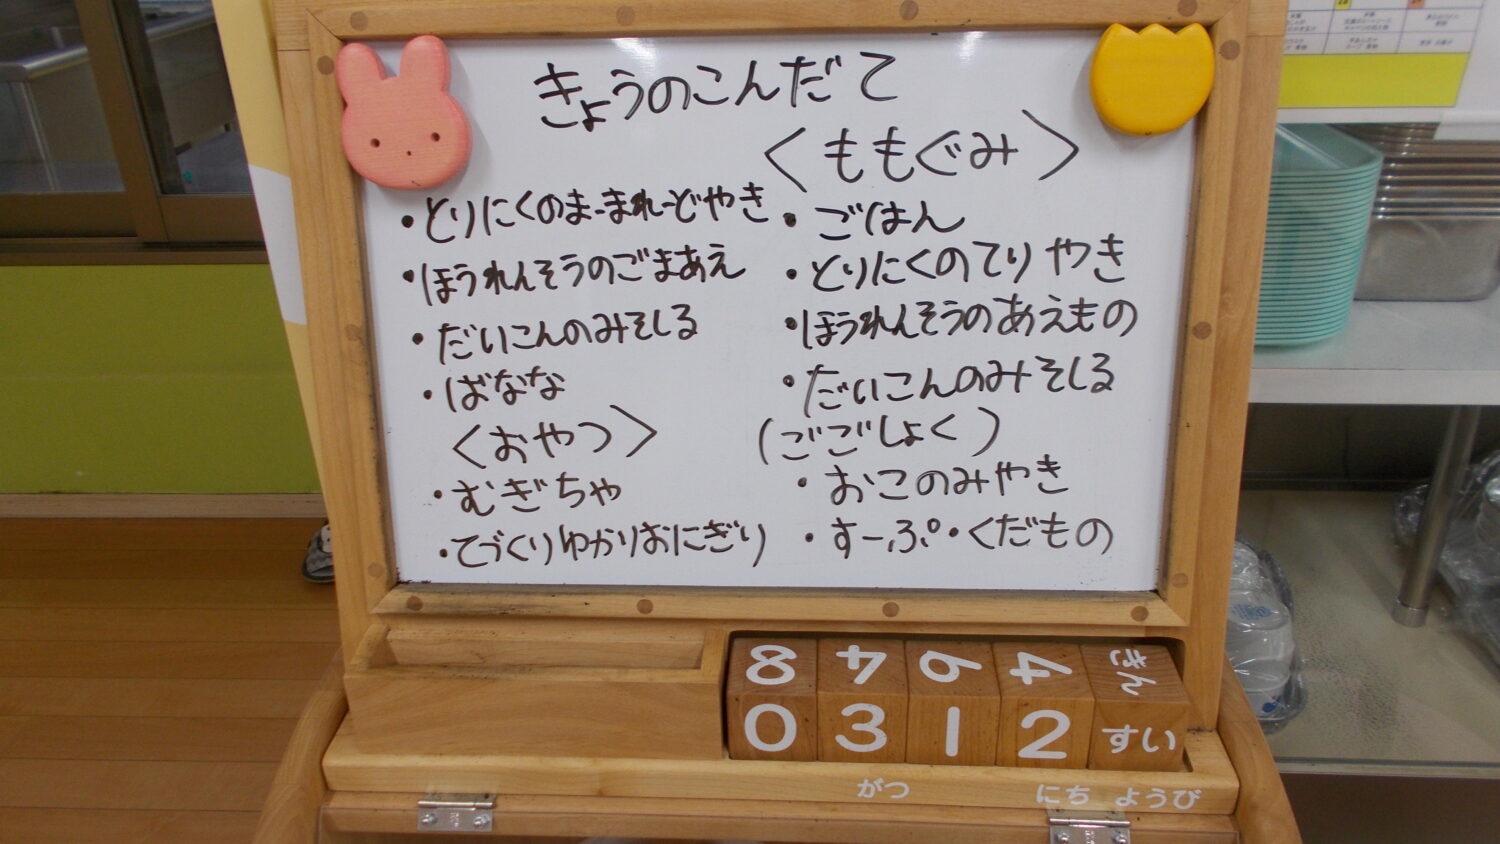 きょうのこんだて
・とりにくのまーまれーどやき
・ほうれんそうのごまあえ
・だいこんのみそしる
・ばなな
<おやつ>
・むぎちゃ
・てづくりゆかりおにぎり
<ももぐみ>
・ごはん
・とりにくのてりやき
・ほうれんそうのあえもの
・だいこんのみそしる
(ごごしょく)
・おこのみやき
・すーぷ・くだもの
8 4 6 4 きん
0 3 1 2 すい
がつ にち ようび